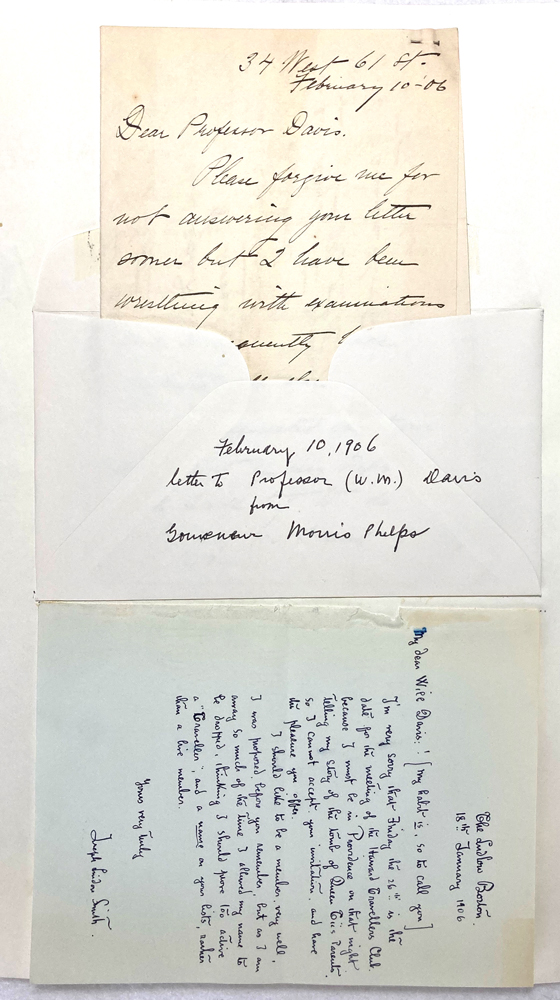 34 West 61 St.
February 10-06
Dear Professor Davis.
Please forgive me for
not answering your letter
sooner but I have been
wrestling with examinations
February 10, 1906
letter to Professor (W.M.) Davis
from
Gouverneur Morris Phelps
The Ludlow Boston.
18th January 1906
My dear Wise Davis:! [my habit is so to call you]
I'm very sorry that Friday the 26th is the
date for the meeting of the Harvard Travellers Club.
because I must be in Providence on that night
telling my story of the tomb of Queen Tii's Parents.
so I cannot accept your invitation and have
the pleasure you offer.
I should like to be a member very well,
I was proposed before you remember, but as I am
away so much of the time I allowed my name to
be dropped, thinking I should prove too active
a "Traveller", and a name on your lists, rather
than a live member.
Yours very truly
Joseph Lindon Smith.